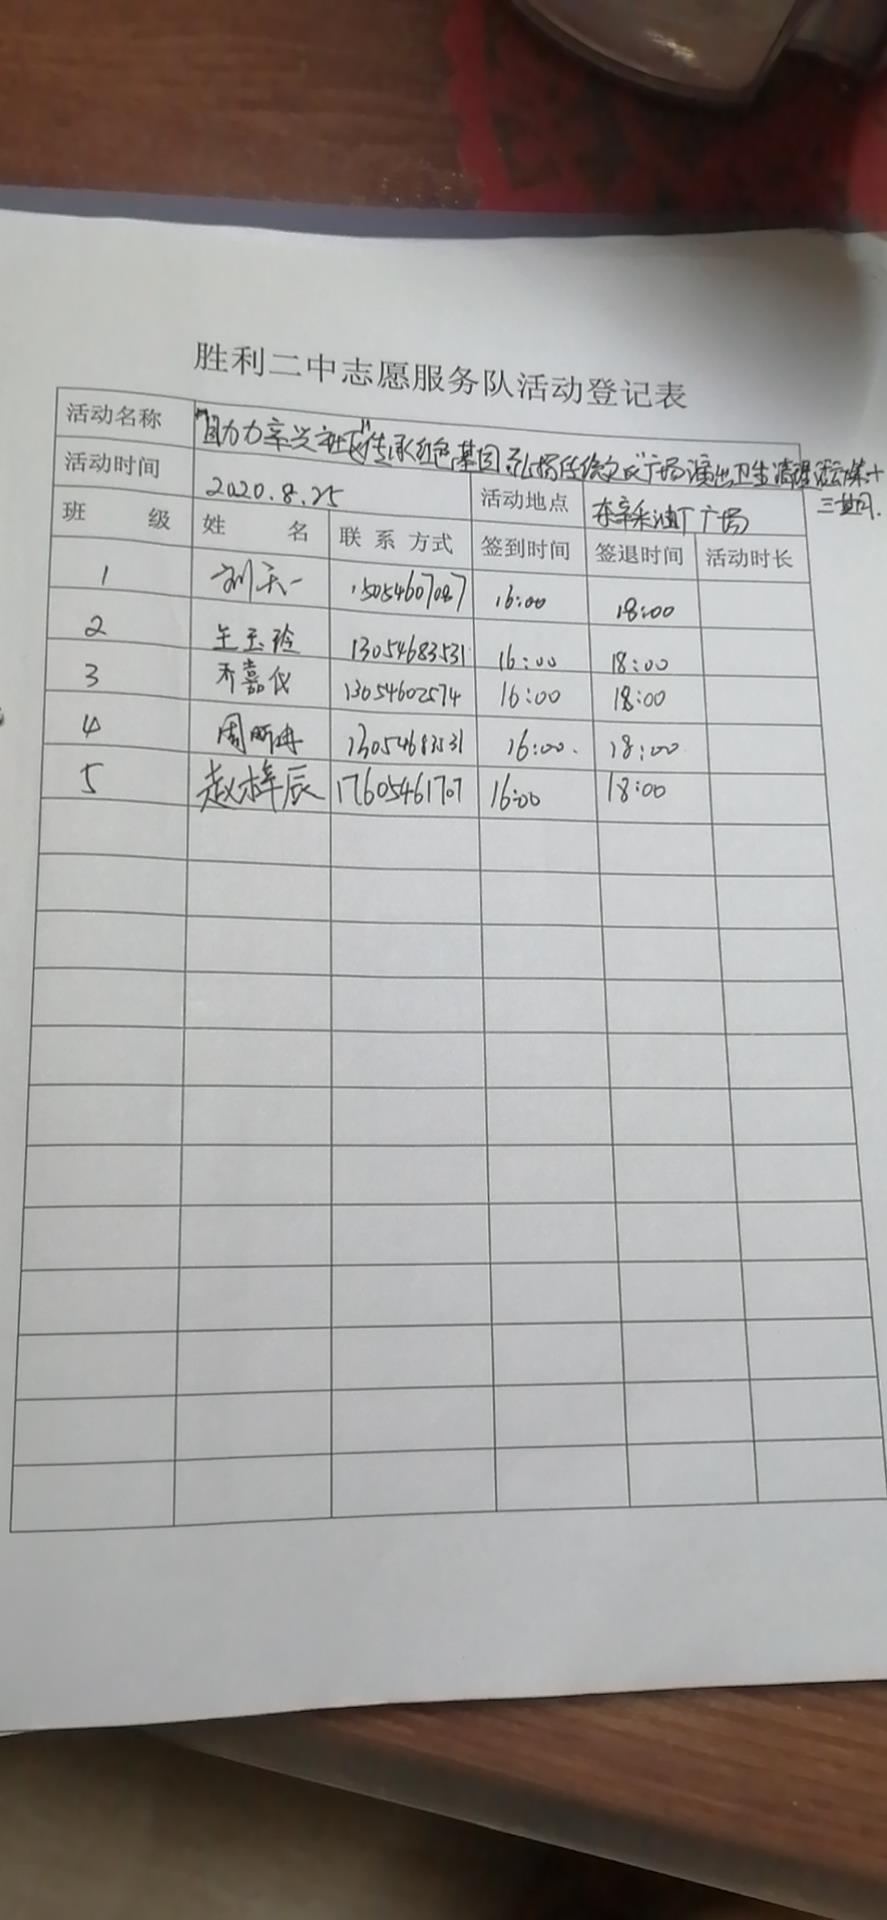 胜利二中志愿服务队活动登记表
活动名称 "助力辛兴社区"传承红色基因 弘扬传统文化"广场演出卫生清理活动第十
三期.
活动时间 2020.8.25 活动地点 东辛采油厂广场
班 级 姓 名 联系方式 签到时间 签退时间 活动时长
1 刘天一 15054607087 16:00 18:00
2 玉玲 13054683531 16:00 18:00
3 乔嘉仪 13054602574 16:00 18:00
4 周 13054683531 16:00. 18:00
5 赵梓辰 17605461707 16:00 18:00